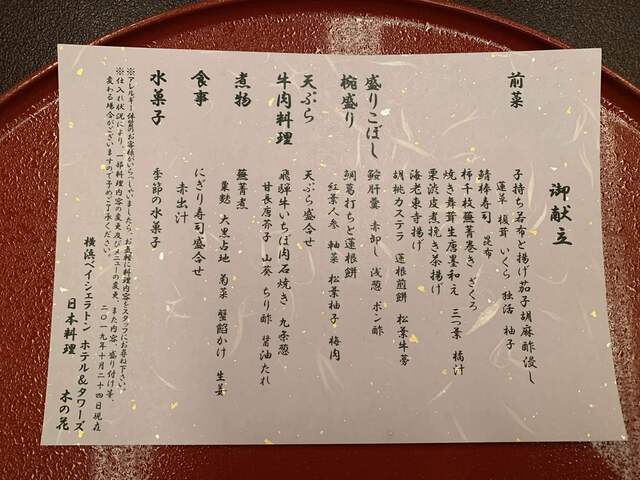 御献立
前菜
子持ち若布と揚げ茄子胡麻酢浸し
蓮草 椎茸 いくら 独活 柚子
鯖棒寿司 昆布
柿千枚蕪菁巻き ざくろ
焼き舞茸生唐墨和え 三つ葉 橘汁
栗渋皮煮挽き茶揚げ
海老老東寺揚げ
胡桃カステラ 蓮根煎餅 松葉牛蒡
盛りこぼし
鮟肝羹 赤卸し 浅葱 ポン酢
椀盛り
鯛葛打ちと蓮根餅
紅葉人参 軸菜 松葉柚子 梅肉
天ぷら
天ぷら盛合せ
牛肉料理
飛騨牛いちぼ肉石焼き 九条葱
甘長唐芥子 山葵 ちり酢 醤油たれ
煮物
蕪菁煮
粟麩 大黒占地 菊菜 蟹餡かけ 生姜
食事
にぎり寿司盛合せ
赤出汁
水菓子
季節の水菓子
※アレルギー体質のお客様がいらっしゃいましたら、お気軽に料理内容をスタッフにお尋ね下さい。
※仕入れ状況により、一部料理内容の変更及びメニューの変更、また内容、盛り付け等、
変わる場合がございますので予めご了承ください。
二〇一九年十月二十四日現在
横浜ベイシェラトン ホテル&タワーズ
日本料理 木の花